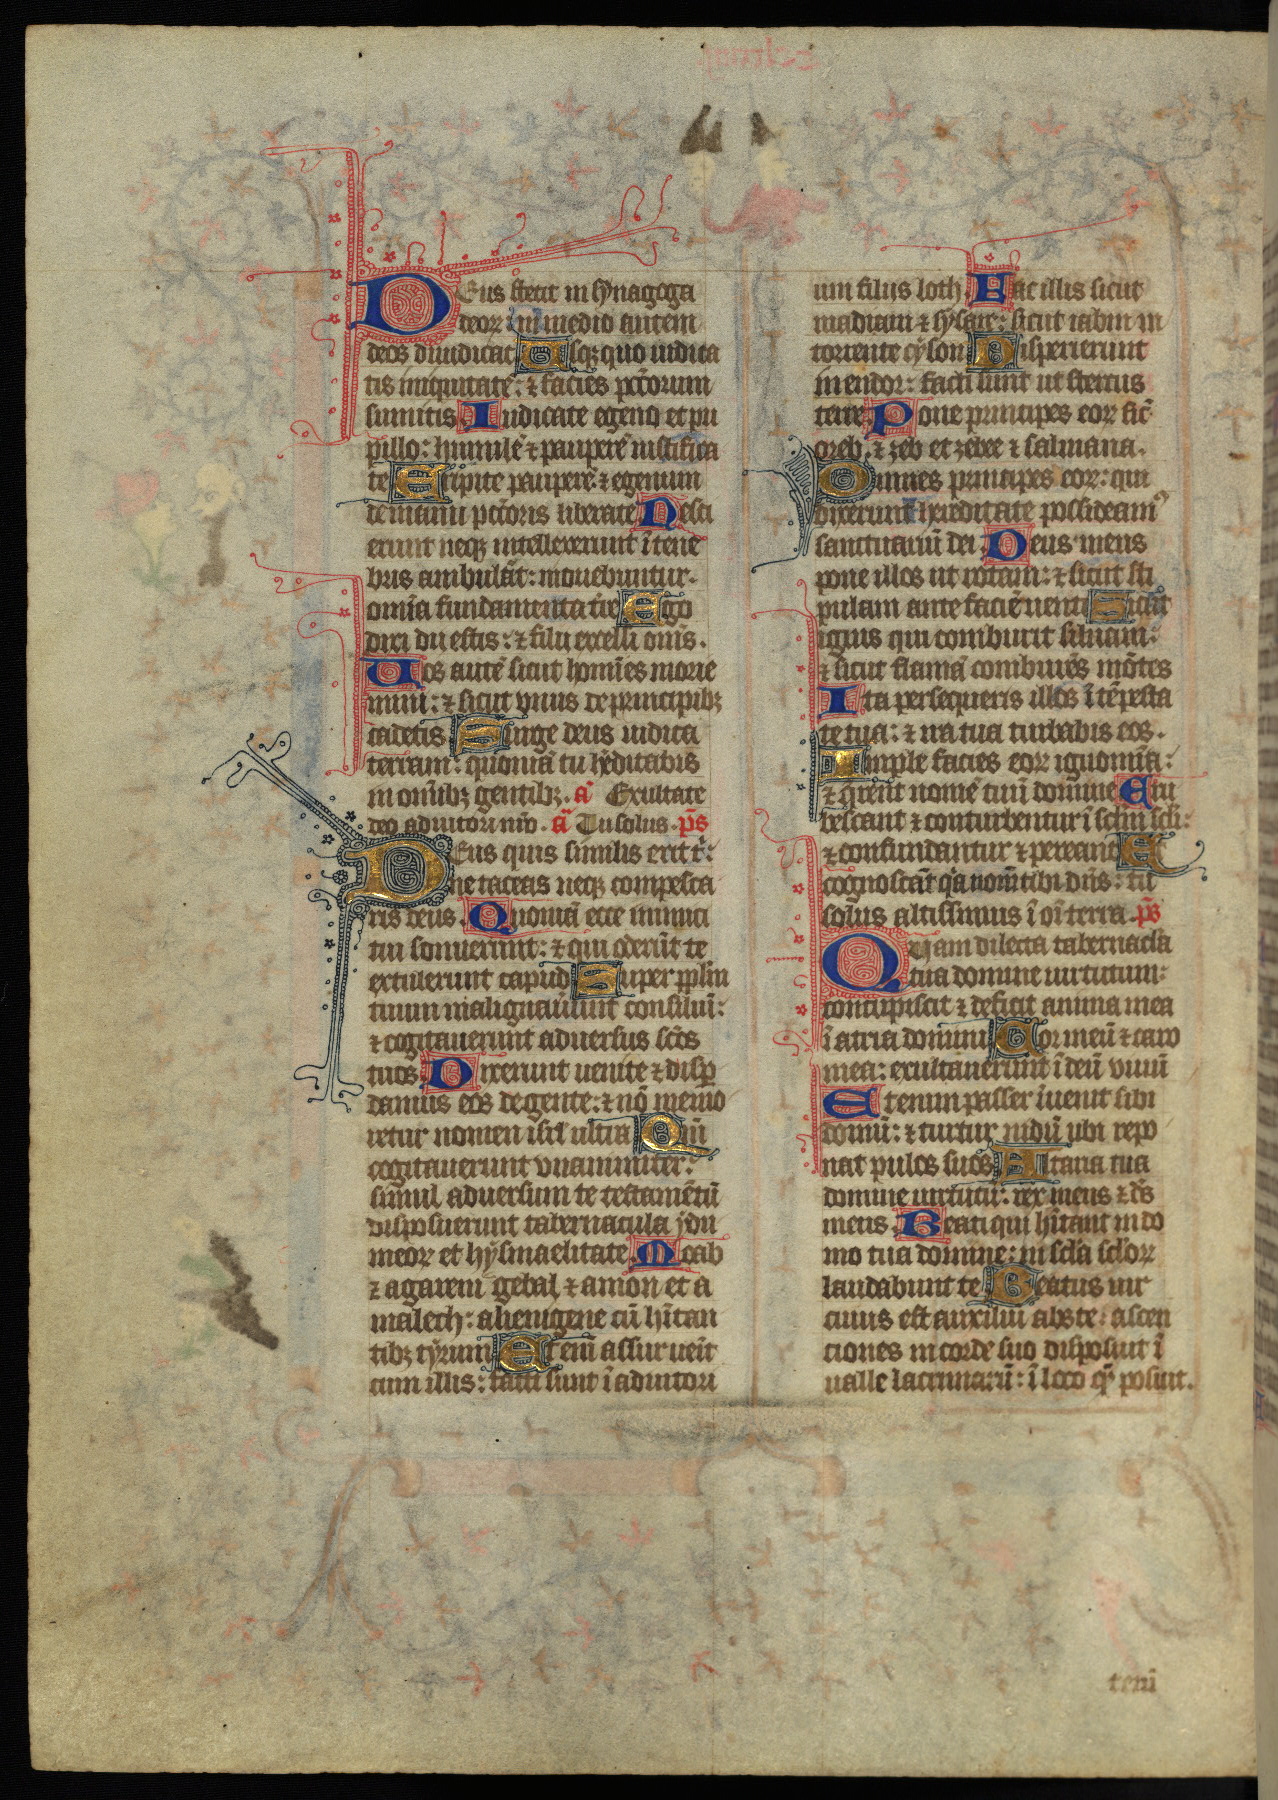 Deus stetit in synagoga
deorꝝ in medio autem
deos diiudicat Usqꝫ quo iudica
tis iniquitatē: ⁊ facies pctōrum
sumitis Iudicate egeno et pu
pillo: humilē ⁊ pauperē iustifica
te Eripite pauperē: ⁊ egenum
de manu pctōris liberate Nesci
erunt neqꝫ intellexerunt ī tene
bris ambulāt: mouebuntur
omīa fundamenta tr̄e Ego
dixi dii estis: ⁊ filii excelsi om̄s.
Uos autē sicut homīes morie
mini: ⁊ sicut vnus de principibꝫ
cadetis Surge deus iudica
terram: quoniā tu h̄editabis
in om̄ibꝫ gentibꝫ. a᷒ Exultate
deo adiutori nr̄o. a᷒ Tu solus. ps̄
Deus quis similis erit t̄:
ne taceas neqꝫ compesca
ris deus. Quoniā ecce inimici
tui sonuerunt: ⁊ qui oderūt te
extulerunt capud Super pplm̄
tuum malignauerunt consiliū:
⁊ cogitauerunt aduersus sc̄os
tuos. Dixerunt uenite ⁊ disꝑ
damus eos de gente: ⁊ nō memo
retur nomen isrl̄ ultra Qm̄
cogitauerunt vnanimiter:
simul aduersum te testamētū
disposuerunt tabernacula ydu
meorꝝ et hysmaelitate. Moab
⁊ agareni gebal ⁊ amon et a
malech: alienigene cū hītan
tibꝫ tyrum Etenī assur uenit
cum illis: facti sunt ī adiutori
um filiis loth. Fac illis sicut
madiam ⁊ sysare: sicut iabin in
torrente cyson Disperierunt
in endor: facti sunt ut stercus
terre Pone principes eorꝝ sic̄
oreb. ⁊ zeb et zebee ⁊ salmana.
Omnes principes eorꝝ: qui
dixerunt hereditate possideamꝰ
sanctuariū dei. Deus meus
pone illos ut rotam: ⁊ sicut sti
pulam ante faciē uenti Sicut
ignis qui comburit siluam:
⁊ sicut flamā comburēs mōtes
Ita persequeris illos ī tēpesta
te tua: ⁊ ira tua turbabis eos.
Imple facies eorꝝ ignomīa:
⁊ q̄rent nomē tuū domine Eru
bescant ⁊ conturbentur ī sclm̄ scl̄i:
⁊ confundantur ⁊ pereant Et
cognoscāt qa nom̄ tibi dn̄s: tu
solus altissimus ī oī terra. ps̄
Quam dilecta tabernacla
tua domine uirtutum:
concupiscit ⁊ deficit anima mea
ī atria domini Cor meū ⁊ caro
mea: exultauerunt ī deū viuū
Etenim passer īuenit sibi
domū: ⁊ turtur nidū ubi repo
nat pulos suos Altaria tua
domine uirtutū: rex meus ⁊ ds̄
meus. Beati qui hītant in do
mo tua domine: in scl̄a scl̄orꝝ
laudabunt te Beatus uir
cuius est auxiliū abs te: ascen
ciones in corde suo disposuit ī
ualle lacrimarū: ī loco qm̄ posuit.
tenī